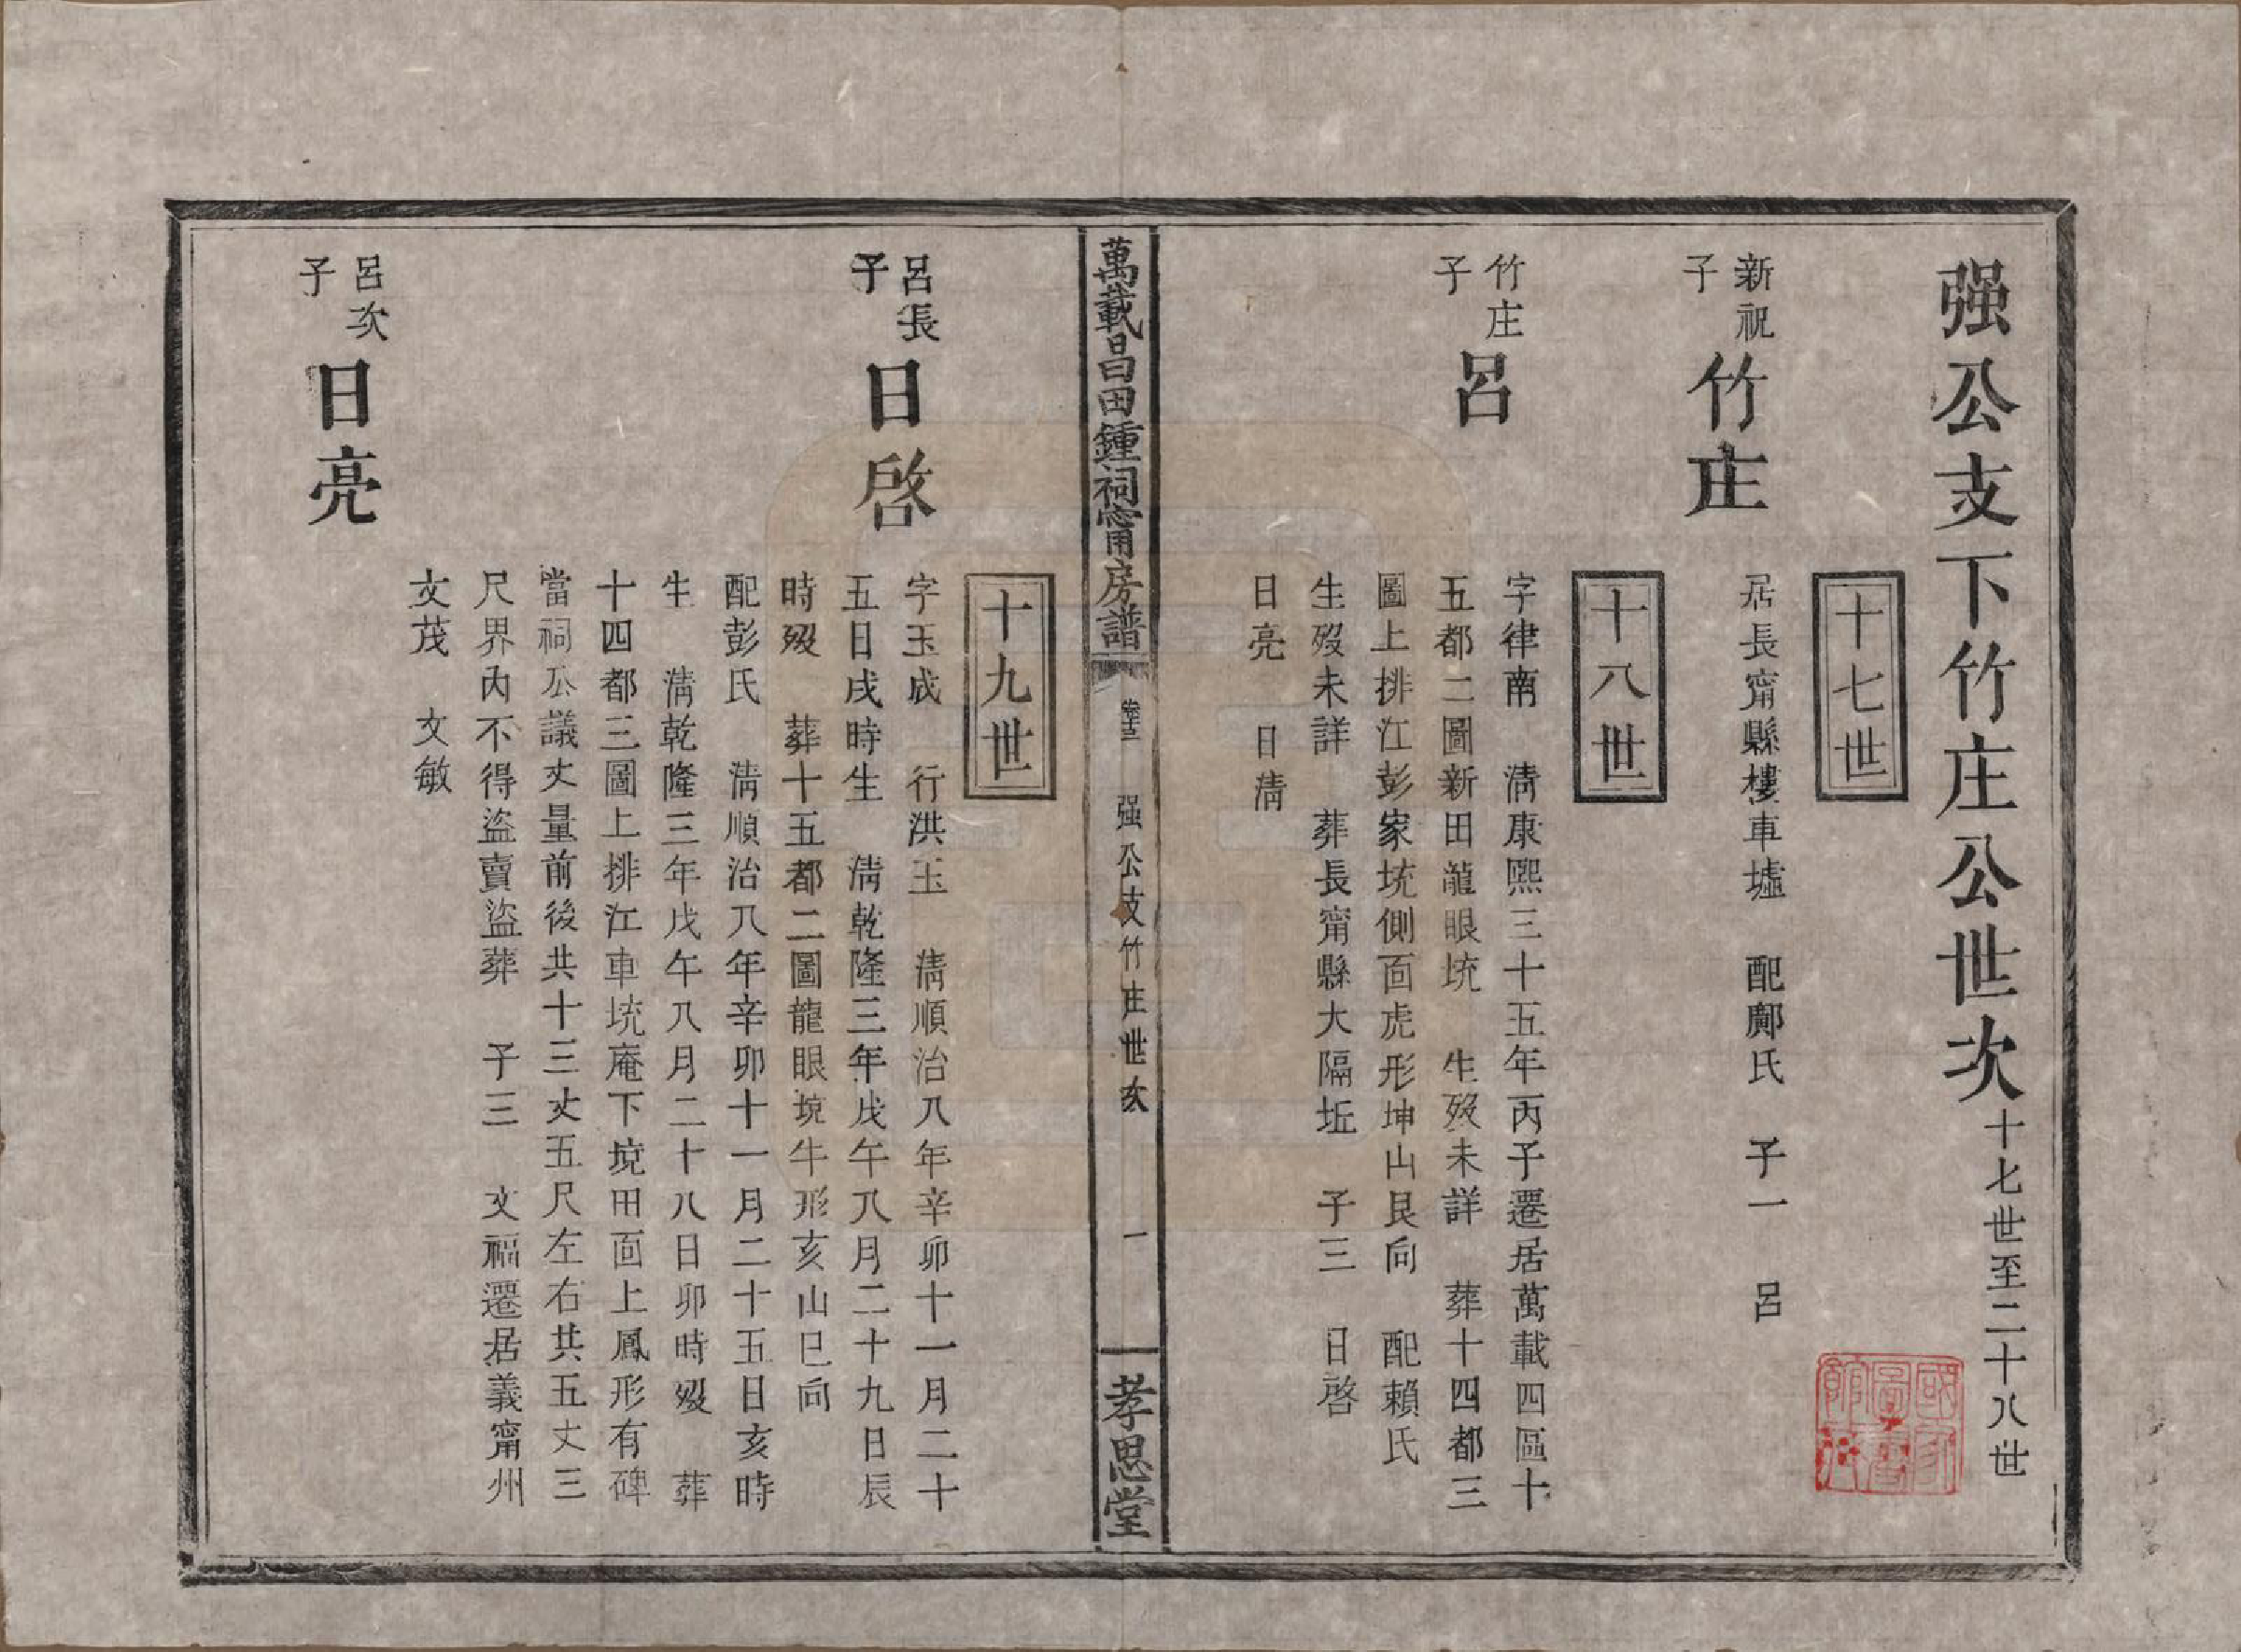 强公支下竹庄公世次十七世至二十八世
十七世
新祝
子
竹庄
居長甯縣樓車墟　配鄺氏　子一　呂
十八世
竹庄
子
呂
字律南　清康熙三十五年丙子遷居萬載四區十
五都二圖新田龍眼坑　生歿未詳　葬十四都三
圖上排江彭家坑側面虎形坤山艮向　配賴氏
生歿未詳　葬長甯縣大隔坵　子三　日啓
日亮　日淸
萬載昌田鍾祠甯用房譜
强公支竹庄世次
一
孝思堂
十九世
呂長
子
日啓
字玉成　行洪玉　淸順治八年辛卯十一月二十
五日戌時生　淸乾隆三年戊午八月二十九日辰
時歿　葬十五都二圖龍眼境牛形亥山巳向
配彭氏　淸順治八年辛卯十一月二十五日亥時
生　淸乾隆三年戊午八月二十八日卯時歿　葬
十四都三圖上排江車坑庵下境田面上鳳形有碑
當祠公議丈量前後共十三丈五尺左右共五丈三
尺界內不得盜賣盜葬　子三　文福遷居義甯州
文茂　文敏
呂次
子
日亮